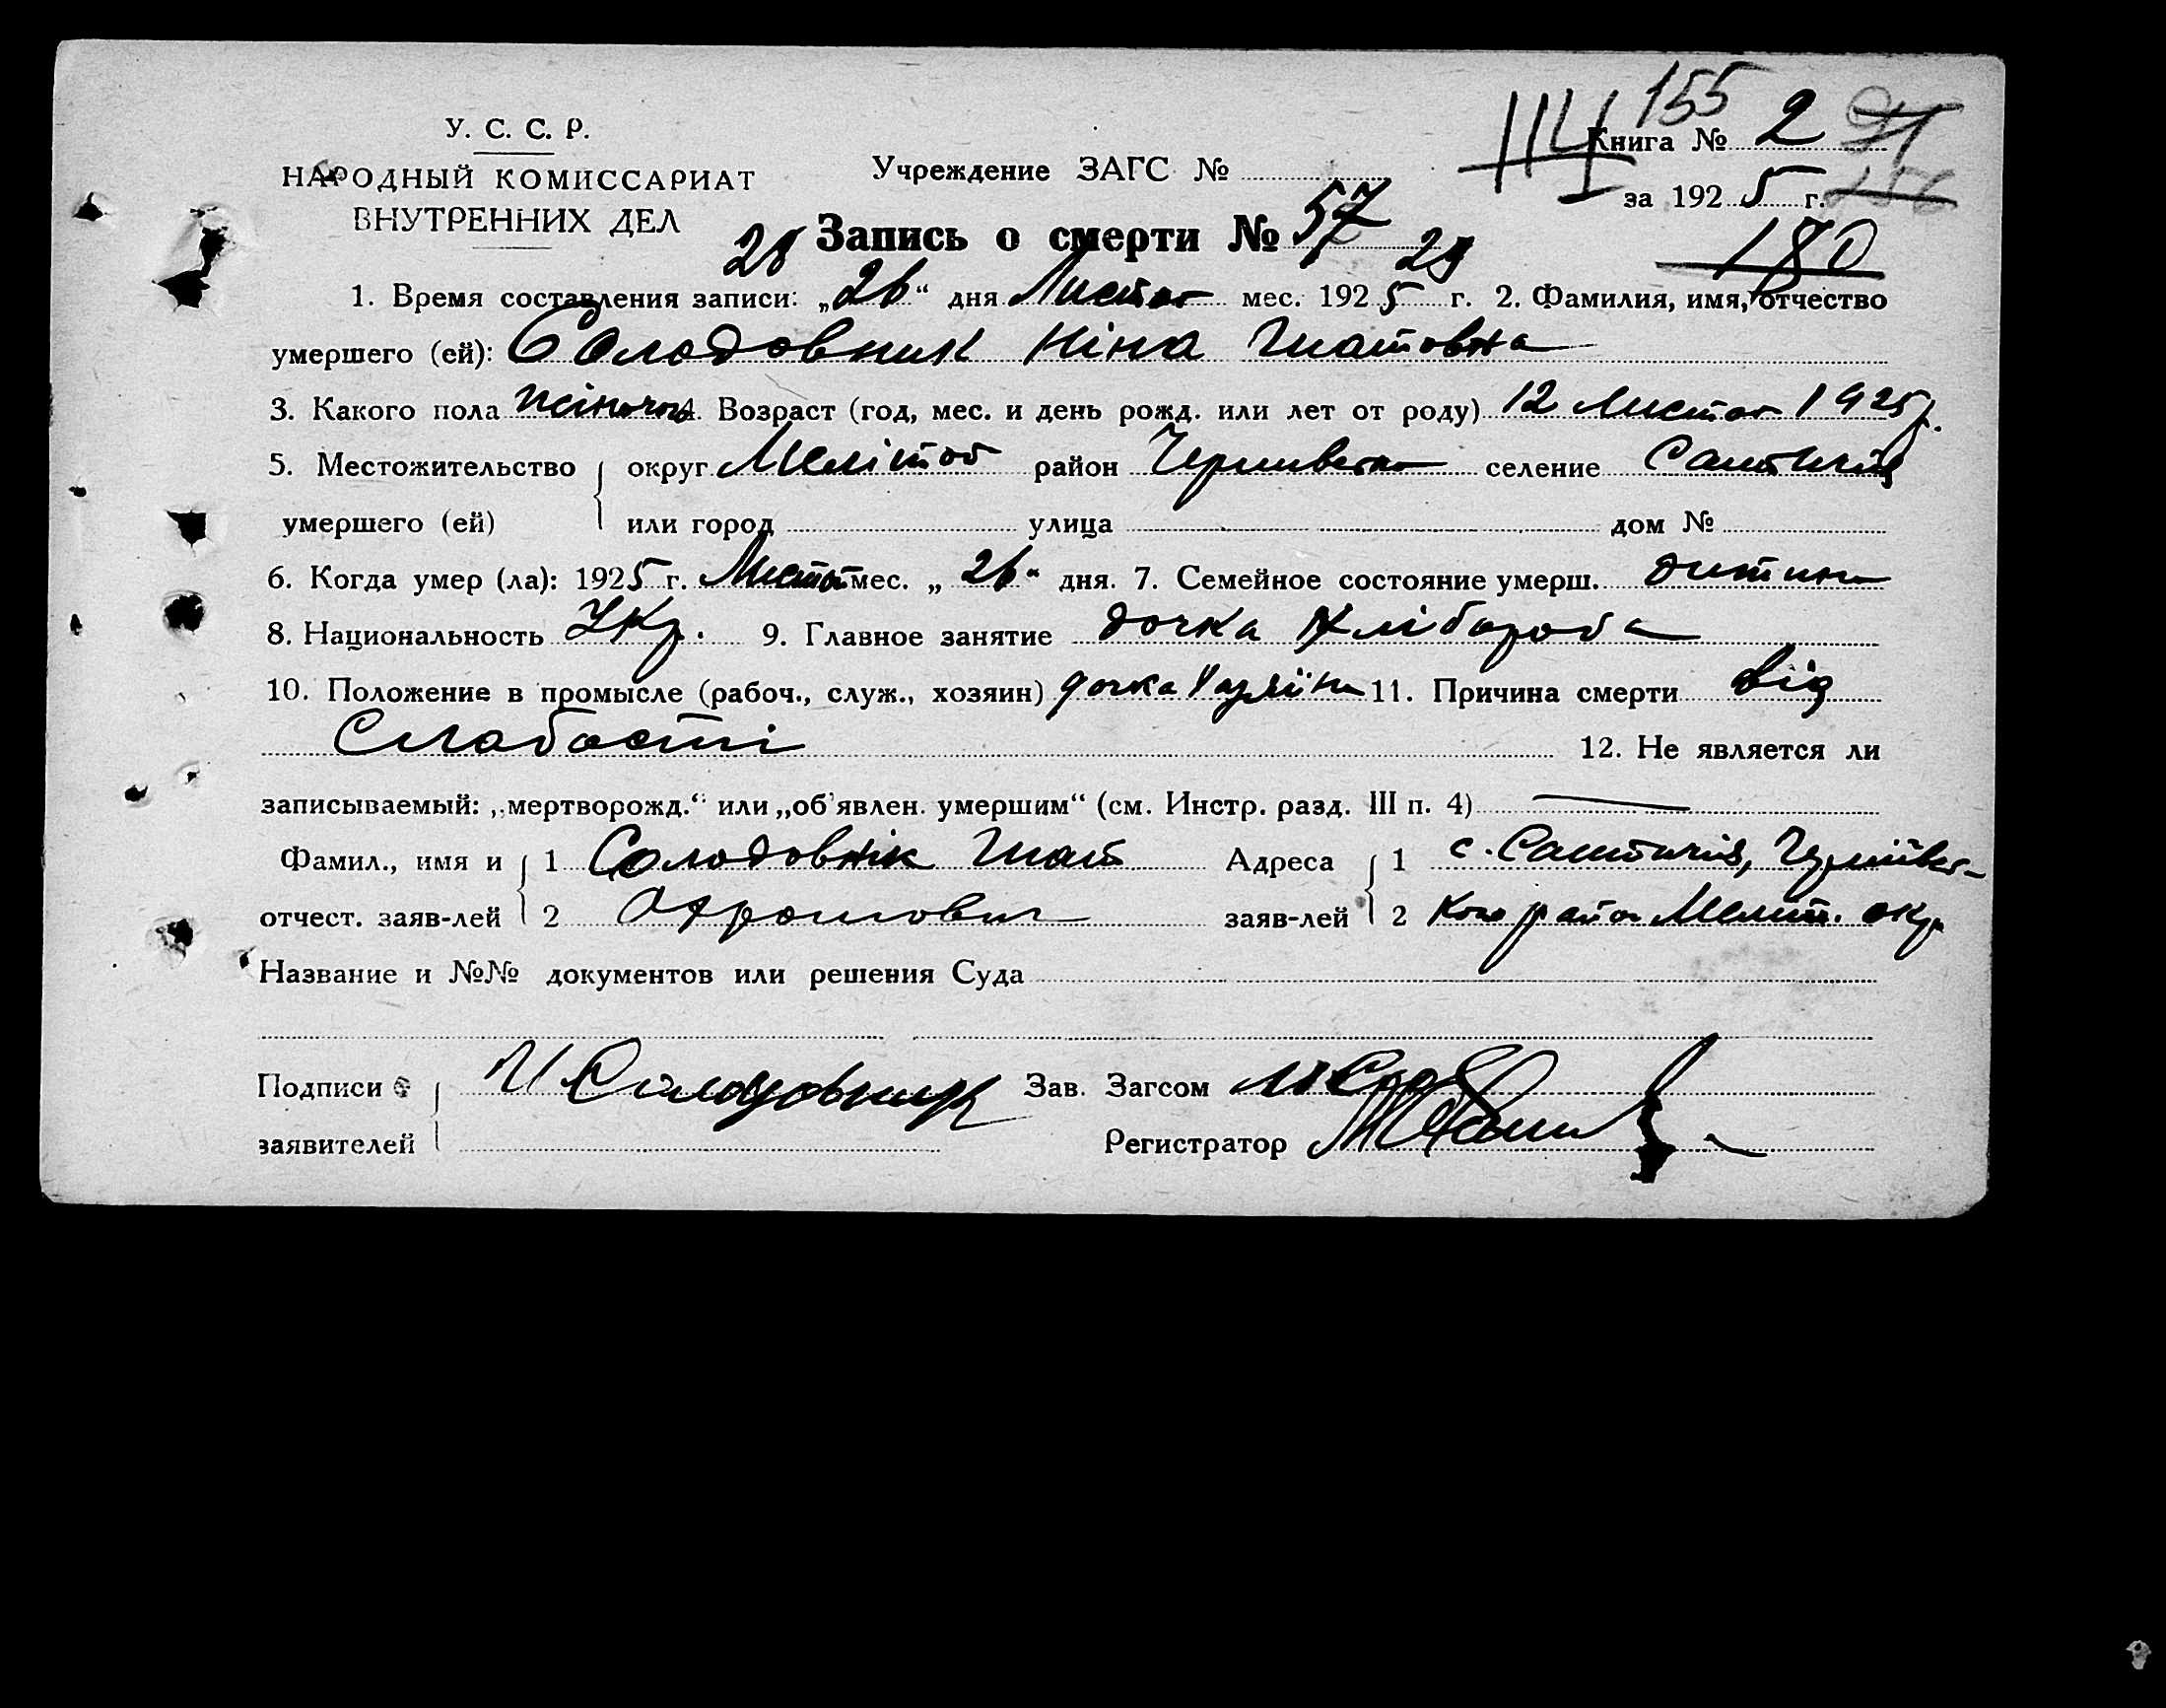 155
У. С. С. Р. 114 Книга № 2
НАРОДНЫЙ КОМИССАРИАТ Учреждение ЗАГС №
ВНУТРЕННИХ ДЕЛ за 1925 г.
28 Запись о смерти № 57 29 180
1. Время составления записи: „26“ дня Листоп мес. 1925 г. 2. Фамилия, имя, отчество
умершего (ей): Солодовник Ніна Гнатовна
3. Какого пола жіночого 4. Возраст (год, мес. и день рожд. или лет от роду) 12 Листоп 1925 р.
5. Местожительство округ Мелітоп район селение
умершего (ей) или город улица дом №
6. Когда умер (ла): 1925 г. Листоп мес. „26“ дня. 7. Семейное состояние умерш. дитина
8. Национальность Укр. 9. Главное занятие дочка Хлібороба
10. Положение в промысле (рабоч., служ., хозяин) дочка Хазяїна 11. Причина смерти від
Слабости 12. Не является ли
записываемый: „мертворожд.“ или „об'явлен. умершим“ (см. Инстр. разд. III п. 4) —
Фамил., имя и 1 Солодовнік Гнат Адреса 1 с.
отчест. заяв-лей 2 заяв-лей 2 район Меліт. окр.
Название и №№ документов или решения Суда
Подписи И Солодовник Зав. Загсом
заявителей Регистратор